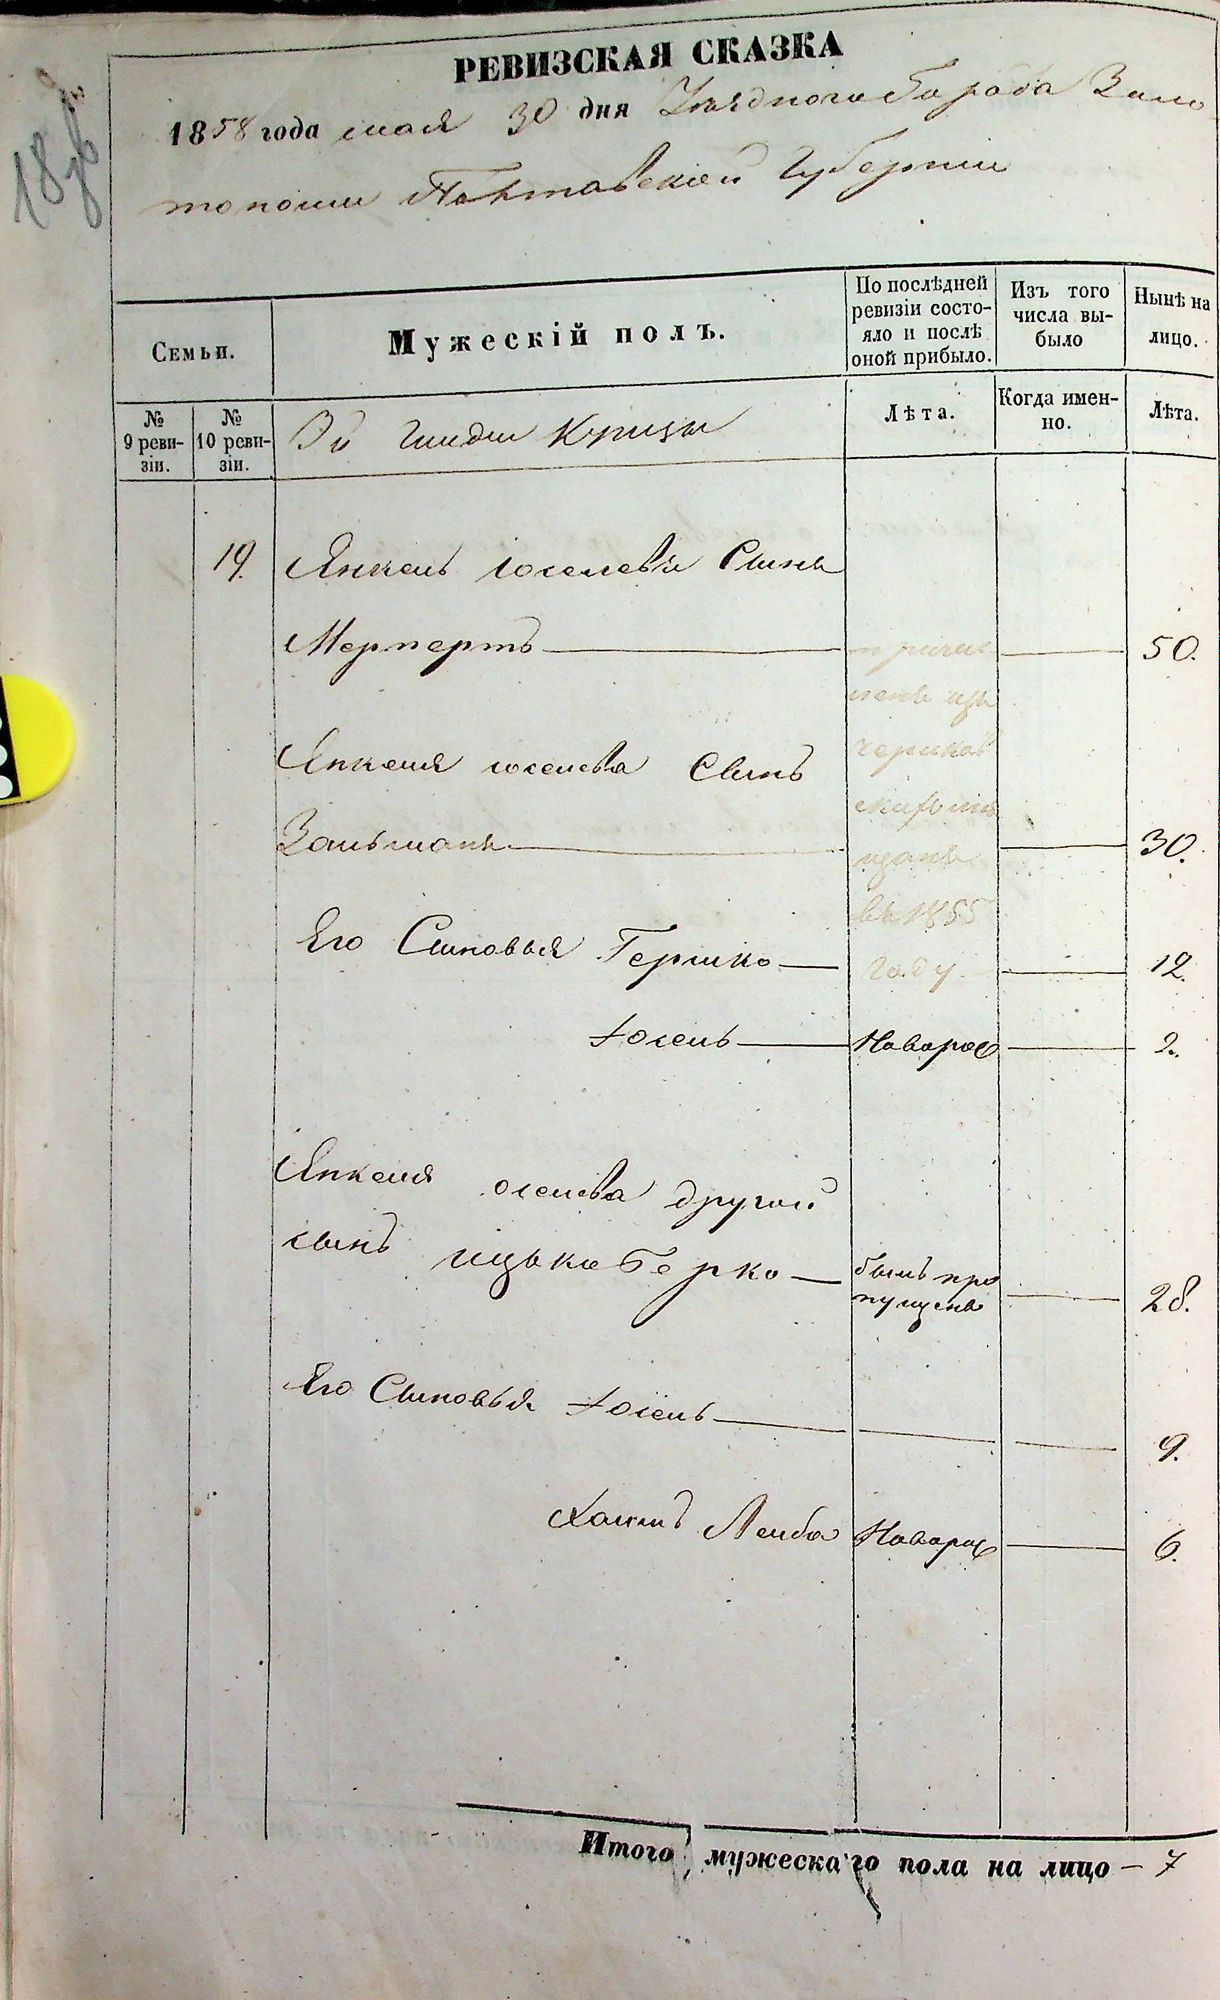 РЕВИЗСКАЯ СКАЗКА
1858 года мая 30 дня Уѣзднаго города Золо
тоноши Полтавской Губерніи
Семьи.
Мужескій полъ.
По послѣдней ревизіи состо-
яло и послѣ оной прибыло.
Изъ того числа вы-
было
Нынѣ на лицо.
№ 9 реви-
зіи.
№ 10 реви-
зіи.
3й Гильдіи Купцы
Лѣта.
Когда имен-
но.
Лѣта.
19. Янкель Іоселевъ Сынъ
Мерпертъ 50.
причис
ленъ изъ
Янкеля Іоселева Сынъ
Зальманъ 30.
въ 1855
году
Его Сыновья Гершко 12.
Іосель Новорож 2.
Янкеля Іоселева другой
сынъ Ицько Берко был про
пущенъ 28.
Его Сыновья Іосель 9.
Хаимъ Лейба Новорож 6.
Итого мужескаго пола на лицо – 7